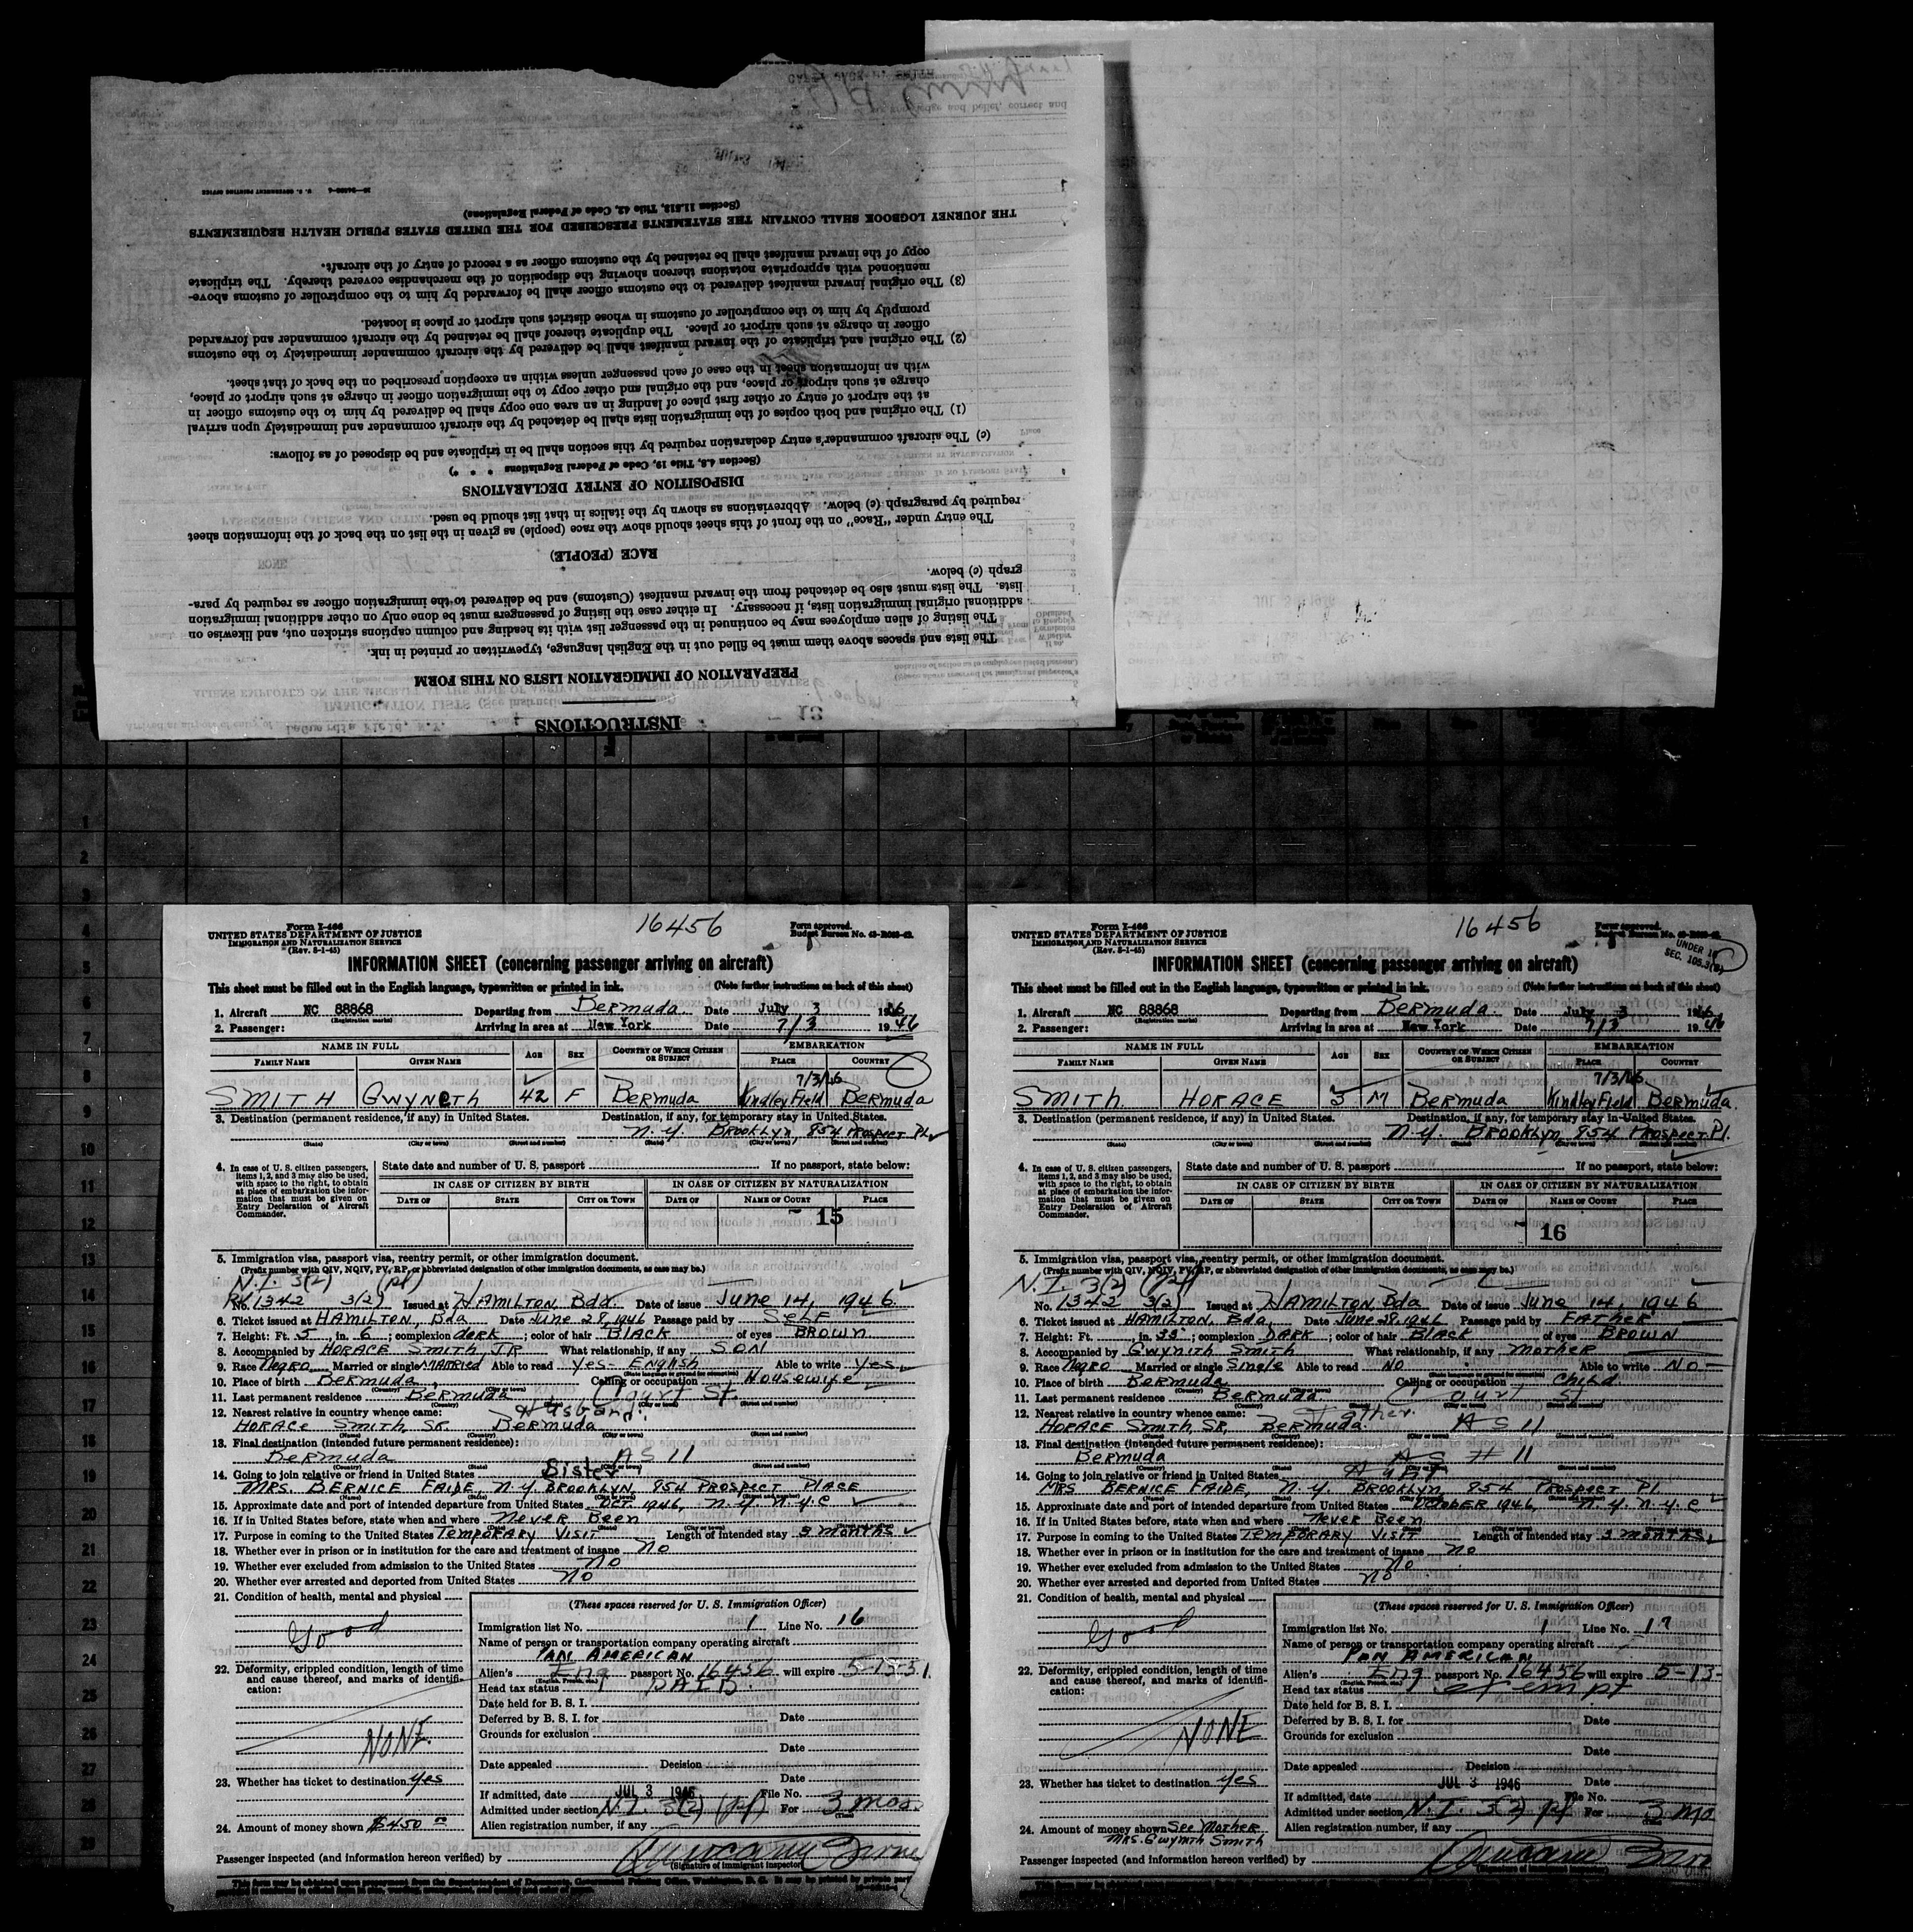 INSTRUCTIONS
PREPARATION OF IMMIGRATION LISTS ON THIS FORM
The lists and spaces above them must be filled out in the English language, typewritten or printed in ink.
The listing of alien employees may be continued in the passenger list with its heading and column captions stricken out, and likewise on
additional original immigration lists, if necessary. In either case the listing of passengers must be done only on other additional immigration
lists. The lists must also be detached from the inward manifest (Customs) and be delivered to the immigration officer as required by para-
graph (c) below.
RACE (PEOPLE)
The entry under "Race" on the front of this sheet should show the race (people) as given in the list on the back of the information sheet
required by paragraph (c) below. Abbreviations as shown by the italics in that list should be used.
DISPOSITION OF ENTRY DECLARATIONS
(Section 4.8, Title 19, Code of Federal Regulations * * *)
(c) The aircraft commander's entry declaration required by this section shall be in triplicate and be disposed of as follows:
(1) The original and both copies of the immigration lists shall be detached by the aircraft commander and immediately upon arrival
at the airport of entry or other first place of landing in an area one copy shall be delivered by him to the customs officer in
charge at such airport or place, and the original and other copy to the immigration officer in charge at such airport or place,
with an information sheet in the case of each passenger unless within an exception prescribed on the back of that sheet.
(2) The original and triplicate of the inward manifest shall be delivered by the aircraft commander immediately to the customs
officer in charge at such airport or place. The duplicate thereof shall be retained by the aircraft commander and forwarded
promptly by him to the comptroller of customs in whose district such airport or place is located.
(3) The original inward manifest delivered to the customs officer shall be forwarded by him to the comptroller of customs above-
mentioned with appropriate notations thereon showing the disposition of the merchandise covered thereby. The triplicate
copy of the inward manifest shall be retained by the customs officer as a record of entry of the aircraft.
THE JOURNEY LOGBOOK SHALL CONTAIN THE STATEMENTS PRESCRIBED FOR THE UNITED STATES PUBLIC HEALTH REQUIREMENTS
(Section 11.513, Title 42, Code of Federal Regulations)
U. S. GOVERNMENT PRINTING OFFICE
Form I-466
UNITED STATES DEPARTMENT OF JUSTICE
IMMIGRATION AND NATURALIZATION SERVICE
(Rev. 8-1-45)
16456
Form approved.
Budget Bureau No. 43-R063-42.
INFORMATION SHEET (concerning passenger arriving on aircraft)
This sheet must be filled out in the English language, typewritten or printed in ink. (Note further instructions on back of this sheet)
1. Aircraft NC 88868 Departing from Bermuda. Date July 3 1946
(Registration marks)
2. Passenger: Arriving in area at New York Date 7/3 1946
NAME IN FULL AGE SEX COUNTRY OF WHICH CITIZEN OR SUBJECT EMBARKATION
FAMILY NAME GIVEN NAME PLACE COUNTRY
7/3/46
SMITH GWYNETH 42 F Bermuda Kindley Field Bermuda
3. Destination (permanent residence, if any) in United States. Destination, if any, for temporary stay in United States.
N.Y. Brooklyn, 854 Prospect Pl.
(State) (City or town) (Street and number) (State) (City or town) (Street and number)
4. In case of U. S. citizen passengers, items 1, 2, and 3 may also be used, with space to the right, to obtain at place of embarkation the information that must be given on Entry Declaration of Aircraft Commander.
State date and number of U. S. passport If no passport, state below:
IN CASE OF CITIZEN BY BIRTH IN CASE OF CITIZEN BY NATURALIZATION
DATE OF STATE CITY OR TOWN DATE OF NAME OF COURT PLACE
15
5. Immigration visa, passport visa, reentry permit, or other immigration document.
(Prefix number with QIV, NQIV, PV, RP, or abbreviated designation of other immigration documents, as case may be.)
N.I. 3(2)
No. 1342 3(2) Issued at Hamilton, Bda. Date of issue June 14, 1946
6. Ticket issued at Hamilton, Bda Date June 28, 1946 Passage paid by Self
7. Height: Ft. 5, in. 6; complexion dark; color of hair Black of eyes Brown
8. Accompanied by Horace Smith, Jr What relationship, if any Son
9. Race Negro Married or single Married Able to read Yes - English Able to write Yes
10. Place of birth Bermuda Calling or occupation Housewife
11. Last permanent residence Bermuda Court St.
12. Nearest relative in country whence came: Husband.
Horace Smith, Sr. Bermuda
13. Final destination (intended future permanent residence):
Bermuda AS 11
14. Going to join relative or friend in United States Sister
Mrs. Bernice Faide, N.Y. Brooklyn, 854 Prospect Place
15. Approximate date and port of intended departure from United States Oct. 1946, N.Y. N.Y.C
16. If in United States before, state when and where Never Been
17. Purpose in coming to the United States Temporary Visit Length of intended stay 3 months
18. Whether ever in prison or in institution for the care and treatment of insane No
19. Whether ever excluded from admission to the United States No
20. Whether ever arrested and deported from United States No
21. Condition of health, mental and physical
Good
22. Deformity, crippled condition, length of time and cause thereof, and marks of identification:
NONE.
23. Whether has ticket to destination Yes
24. Amount of money shown $450
(These spaces reserved for U. S. Immigration Officer)
Immigration list No. 1 Line No. 16
Name of person or transportation company operating aircraft
Pan American
Alien's Eng passport No. 16456 will expire 5-13-51
Head tax status PAID.
Date held for B. S. I.
Deferred by B. S. I. for Date
Grounds for exclusion
Date
Date appealed Decision
Date
If admitted, date JUL 3 1946 File No.
Admitted under section N.I. 3(2) For 3 mos.
Alien registration number, if any
Passenger inspected (and information hereon verified) by
(Signature of immigrant inspector)
Form I-466
UNITED STATES DEPARTMENT OF JUSTICE
IMMIGRATION AND NATURALIZATION SERVICE
(Rev. 8-1-45)
16456
Form approved.
Budget Bureau No. 43-R063-42.
UNDER 16
SEC. 105.3(B)
INFORMATION SHEET (concerning passenger arriving on aircraft)
This sheet must be filled out in the English language, typewritten or printed in ink. (Note further instructions on back of this sheet)
1. Aircraft NC 88868 Departing from Bermuda. Date July 3 1946
(Registration marks)
2. Passenger: Arriving in area at New York Date 7/3 1946
NAME IN FULL AGE SEX COUNTRY OF WHICH CITIZEN OR SUBJECT EMBARKATION
FAMILY NAME GIVEN NAME PLACE COUNTRY
7/3/46
SMITH. HORACE 3 M Bermuda Kindley Field Bermuda.
3. Destination (permanent residence, if any) in United States. Destination, if any, for temporary stay in United States.
N.Y. Brooklyn, 854 Prospect Pl.
(State) (City or town) (Street and number) (State) (City or town) (Street and number)
4. In case of U. S. citizen passengers, items 1, 2, and 3 may also be used, with space to the right, to obtain at place of embarkation the information that must be given on Entry Declaration of Aircraft Commander.
State date and number of U. S. passport If no passport, state below:
IN CASE OF CITIZEN BY BIRTH IN CASE OF CITIZEN BY NATURALIZATION
DATE OF STATE CITY OR TOWN DATE OF NAME OF COURT PLACE
16
5. Immigration visa, passport visa, reentry permit, or other immigration document.
(Prefix number with QIV, NQIV, PV, RP, or abbreviated designation of other immigration documents, as case may be.)
N.I. 3(2)
No. 1342 3(2) Issued at Hamilton, Bda Date of issue June 14, 1946
6. Ticket issued at Hamilton, Bda. Date June 28, 1946 Passage paid by Father
7. Height: Ft. , in. 33; complexion Dark; color of hair Black of eyes Brown
8. Accompanied by Gwynith Smith What relationship, if any Mother
9. Race Negro Married or single Single Able to read No Able to write No
10. Place of birth Bermuda Calling or occupation Child
11. Last permanent residence Bermuda. Court St
12. Nearest relative in country whence came: Father.
Horace Smith, Sr, Bermuda. AS 11
13. Final destination (intended future permanent residence):
Bermuda AS # 11
14. Going to join relative or friend in United States Aunt
Mrs Bernice Faide, N.Y. Brooklyn, 854 Prospect Pl.
15. Approximate date and port of intended departure from United States October 1946, N.Y. N.Y.C
16. If in United States before, state when and where Never Been.
17. Purpose in coming to the United States Temporary Visit Length of intended stay 3 months
18. Whether ever in prison or in institution for the care and treatment of insane No
19. Whether ever excluded from admission to the United States No
20. Whether ever arrested and deported from United States No
21. Condition of health, mental and physical
Good
22. Deformity, crippled condition, length of time and cause thereof, and marks of identification:
NONE
23. Whether has ticket to destination Yes
24. Amount of money shown See Mother
Mrs. Gwynith Smith
(These spaces reserved for U. S. Immigration Officer)
Immigration list No. 1 Line No. 17
Name of person or transportation company operating aircraft
Pan American
Alien's Eng passport No. 16456 will expire 5-13-
Head tax status exempt
Date held for B. S. I.
Deferred by B. S. I. for Date
Grounds for exclusion
Date
Date appealed Decision
Date
If admitted, date JUL 3 1946 File No.
Admitted under section N.I. 3(2) For 3 mo
Alien registration number, if any
Passenger inspected (and information hereon verified) by